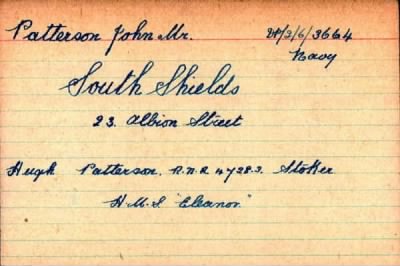 Patterson John Mr. 21/3/6/3664
Navy
South Shields
23. Albion Street
Hugh Patterson. R.N.R 4728.S. Stoker
H.M.S "Eleanor."